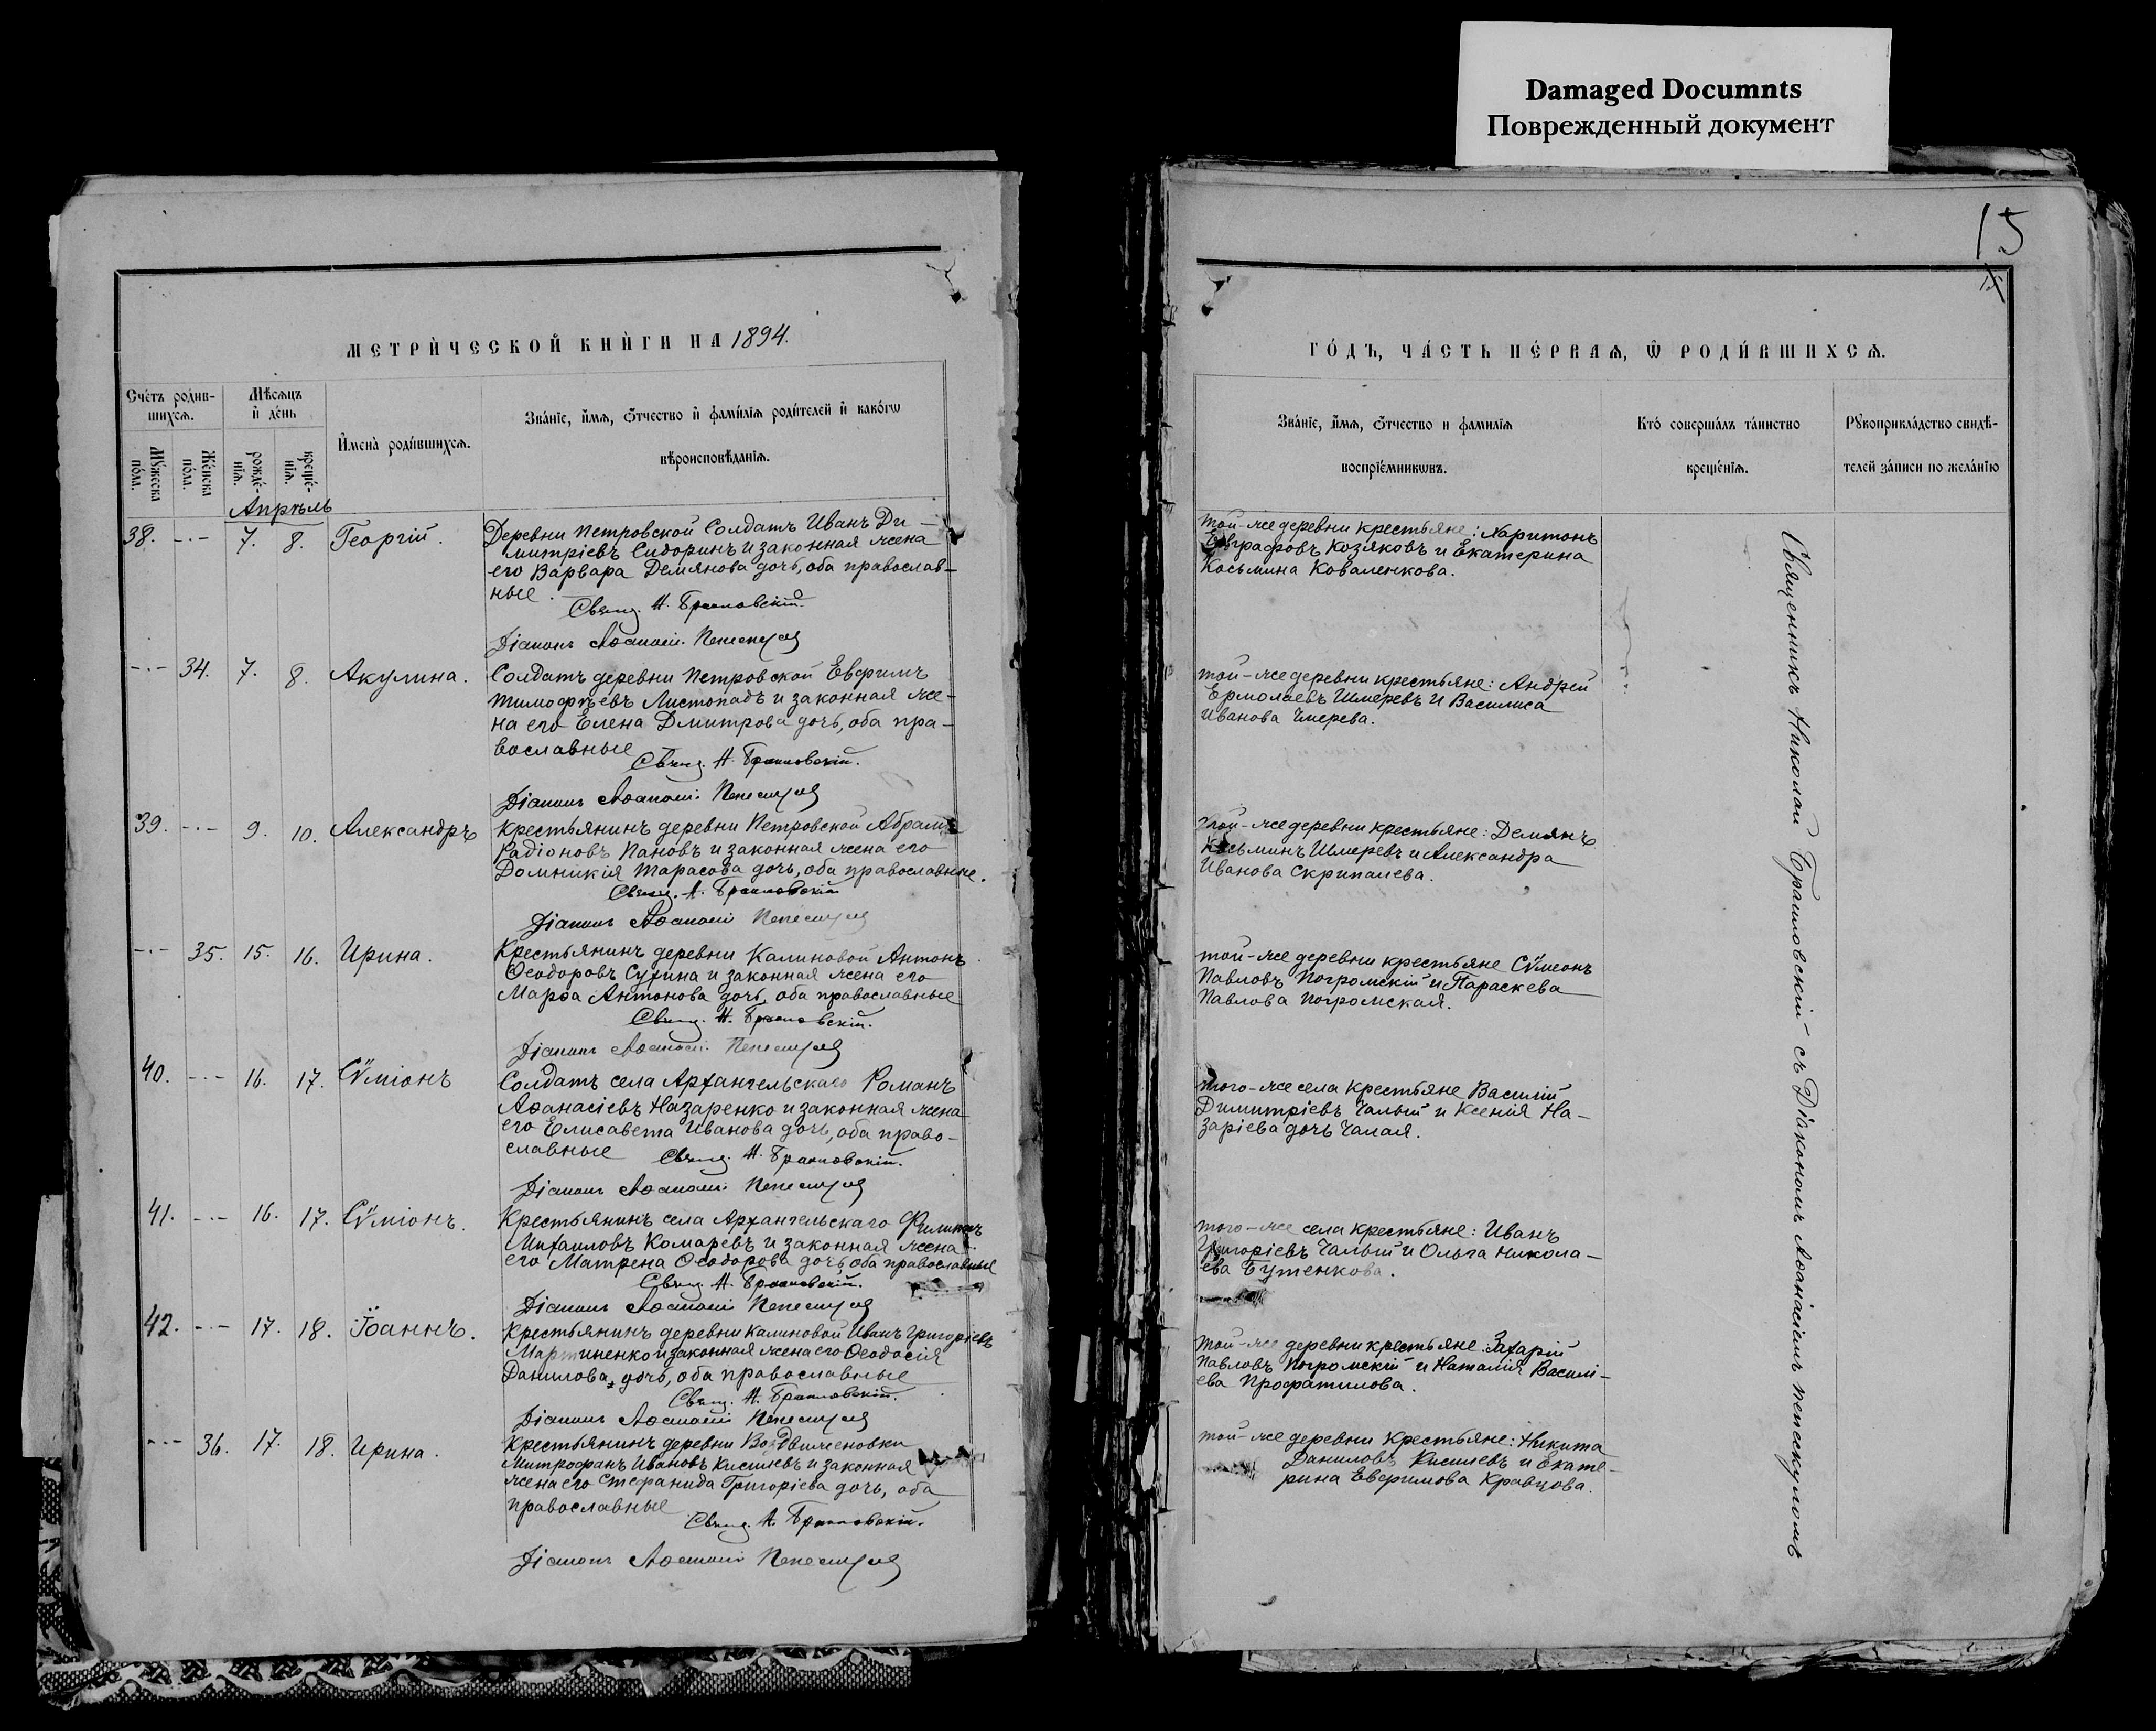 Damaged Documnts
Поврежденный документ
15
МЕТРИЧЕСКОЙ КНИГИ НА 1894.
Счетъ родив-
шихся.
Мѣсяцъ
и день
Мужеска
пола.
Женска
пола.
рожде-
нія.
креще-
нія.
Имена родившихся.
Званіе, имя, отчество и фамилія родителей и какогѡ
вѣроисповѣданія.
Апрѣль
38. -.- 7. 8. Георгій.
Деревни Петровской Солдатъ Иванъ Ди-
митріевъ Сидоринъ и законная жена
его Варвара Демянова дочь, оба православ-
ные.
Свящ. Н.
Діаконъ
-.- 34. 7. 8. Акулина.
Солдатъ деревни Петровской Евфимъ
Тимофѣевъ Листопадъ и законная же-
на его Елена Дмитрова дочь, оба пра-
вославные
Свящ. Н.
Діаконъ
39. -.- 9. 10. Александръ
Крестьянинъ деревни Петровской Абрамъ
Радіоновъ Пановъ и законная жена его
Домникія Тарасова дочь, оба православные.
Свящ. Н.
Діаконъ
-.- 35. 15. 16. Ирина.
Крестьянинъ деревни Калиновой Антонъ
Ѳеодоровъ Сухина и законная жена его
Марѳа Антонова дочь, оба православные
Свящ. Н.
Діаконъ
40. -.- 16. 17. Сѷміонъ
Солдатъ села Архангельскаго Романъ
Аѳанасіевъ Назаренко и законная жена
его Елисавета Иванова дочь, оба право-
славные
Свящ. Н.
Діаконъ
41. -.- 16. 17. Сѷміонъ.
Крестьянинъ села Архангельскаго Филиппъ
Михаиловъ Комаревъ и законная жена
его Матрена Ѳеодорова дочь, оба православные
Свящ. Н.
Діаконъ
42. -.- 17. 18. Іоаннъ.
Крестьянинъ деревни Калиновой Иванъ Григоріевъ
Мартиненко и законная жена его Ѳеодосія
Данилова дочь, оба православные
Свящ. Н.
Діаконъ
-.- 36. 17. 18. Ирина.
Крестьянинъ деревни Воздвиженовки
Митрофанъ Ивановъ Киселевъ и законная
жена его Стефанида Григоріева дочь, оба
православные
Свящ. Н.
Діаконъ
ГОДЪ, ЧАСТЬ ПЕРВАЯ, Ѡ РОДИВШИХСЯ.
Званіе, имя, отчество и фамилія
воспріемникѡвъ.
Кто совершалъ таинство
крещенія.
Рукоприкладство свидѣ-
телей записи по желанію
той-же деревни крестьяне: Харитонъ
Евграфовъ Козяковъ и Екатерина
Косьмина Коваленкова.
той-же деревни крестьяне: Андрей
Ермолаевъ Шмеревъ и Василиса
Иванова
той-же деревни крестьяне: Демянъ
Косьминъ Шмеревъ и Александра
Иванова Скрипалева.
той-же деревни крестьяне Сѷмеонъ
Павловъ Погромскій и Параскева
Павлова Погромская.
того-же села крестьяне Василій
Димитріевъ Чалый и Ксенія На-
заріева дочь Чалая.
того-же села крестьяне: Иванъ
Григоріевъ Чалый и Ольга Никола-
ева Бутенкова.
той-же деревни крестьяне: Захарій
Павловъ Погромскій и Наталія Василі-
ева Профатилова.
той-же деревни крестьяне: Никита
Даниловъ Киселевъ и Екате-
рина Евфимова Кравцова.
Священникъ Николай Брайловскій съ Діакономъ Аѳанасіемъ Пепескуломъ